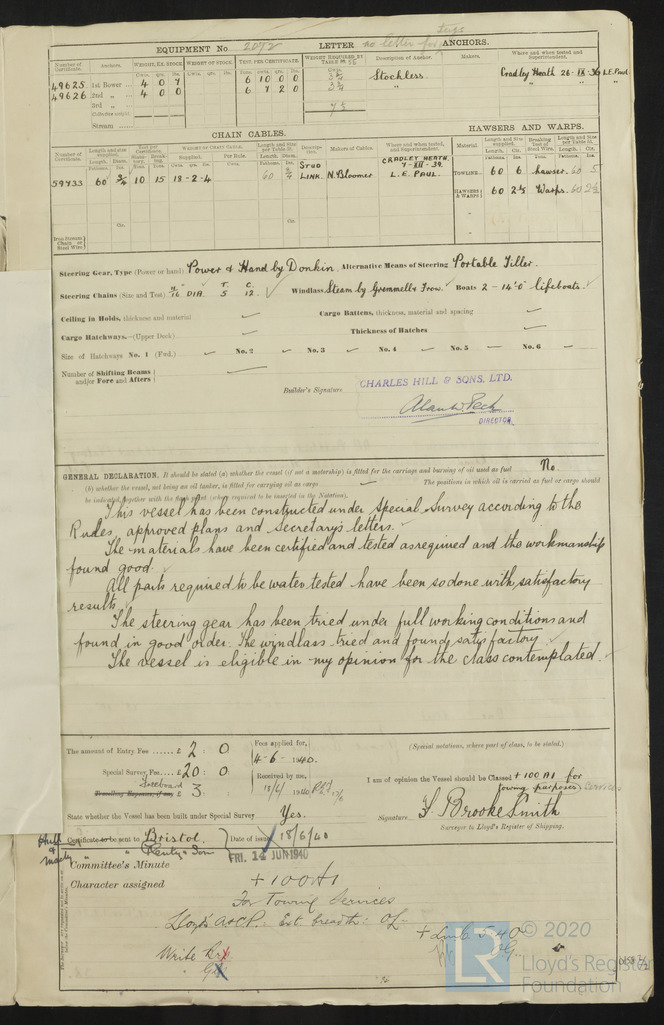 EQUIPMENT No 2072 LETTER no letter for tugs ANCHORS.
Number of Certificate. Anchors. WEIGHT, EX. STOCK WEIGHT OF STOCK. TEST, PER CERTIFICATE. WEIGHT REQUIRED BY TABLE Description of Anchor. Makers. Where and when tested and Superintendent.
Cwts. qrs. lbs.
49625 1st Bower 4 0 7 6 10 0 0 Stockless Cradley Heath 26-IX-36 L.E. Paul
49626 2nd „ 4 0 0 6 7 2 0 „
3rd „
Collective weight
Stream
CHAIN CABLES. HAWSERS AND WARPS.
Number of Certificate. Length and size supplied. Test per Certificate. WEIGHT OF CHAIN CABLE. Length and size per Table Description. Makers of Cables. Where and when tested, and Superintendent. Material Length and size supplied. Breaking Test of Steel Wire. Length and Size per Table
59733 60 3/4 10 15 18-2-4 60 3/4 STUD LINK. N. Bloomer CRADLEY HEATH. 7-XII-39. L.E. PAUL.
TOWLINE 60 6 hawser. 60 5
HAWSERS & WARPS 60 2½ Warps. 60 2½
Iron Stream Chain or Steel Wire
Steering Gear, Type (Power or hand) Power & Hand by Donkin. Alternative Means of Steering Portable Tiller.
Steering Chains (Size and Test) 11/16" DIA. T. 5 C. 12. Windlass Steam by Boats 2 - 14'0 lifeboats.
Ceiling in Holds, thickness and material Cargo Battens, thickness, material and spacing
Cargo Hatchways.—(Upper Deck) Thickness of Hatches
Size of Hatchways No. 1 (Fwd.) No. 2 No. 3 No. 4 No. 5 No. 6
Number of Shifting Beams and/or Fore and Afters
Builder's Signature CHARLES HILL & SONS, LTD.
DIRECTOR.
GENERAL DECLARATION. It should be stated (a) whether the vessel (if not a motorship) is fitted for the carriage and burning of oil used as fuel No.
(b) whether the vessel, not being an oil tanker, is fitted for carrying oil as cargo The positions in which oil is carried as fuel or cargo should
be indicated, together with the flash point (where required to be inserted in the Notation).
This vessel has been constructed under Special Survey according to the
Rules, approved plans and Secretary's letters.
The materials have been certified and tested as required and the workmanship
found good.
All parts required to be water tested have been so done with satisfactory
results
The steering gear has been tried under full working conditions and
found in good order. The windlass tried and found satisfactory.
The vessel is eligible in my opinion for the class contemplated.
The amount of Entry Fee £ 2 : 0 Fees applied for, 4-6- 1940. (Special notations, where part of class, to be stated.)
Special Survey Fee £ 20 : 0 Received by me,
Freeboard
Travelling Expenses, if any £ 3
I am of opinion the Vessel should be Classed +100 A1 for
towing purposes services
State whether the Vessel has been built under Special Survey Yes. Signature F Brooke Smith
Surveyor to Lloyd's Register of Shipping.
Certificate to be sent to Bristol. Date of issue 18/6/40
Committee's Minute FRI. 14 JUN 1940
Character assigned +100A1
For Towing Services
Lloyd's A&CP. Ext. breadth
+ LMC 5.40
Write
© 2020
LR
Lloyd's Register
Foundation